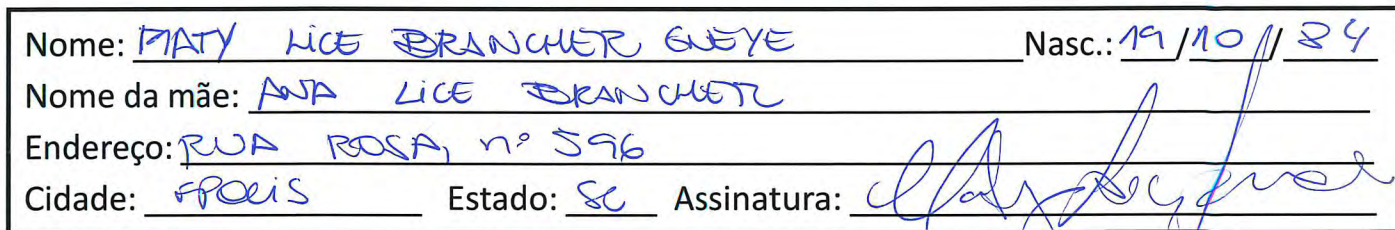 Nome: MATY LICE BRANCHER GUEYE Nasc.: 19/10/84
Nome da mãe: ANA LICE BRANCHER
Endereço: RUA ROSA, nº 596
Cidade: FPOLIS Estado: SC Assinatura: